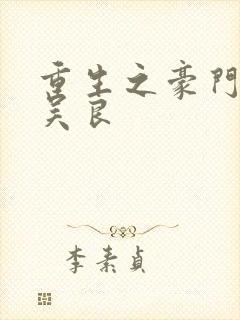 重生之豪門
吴良
李素貞